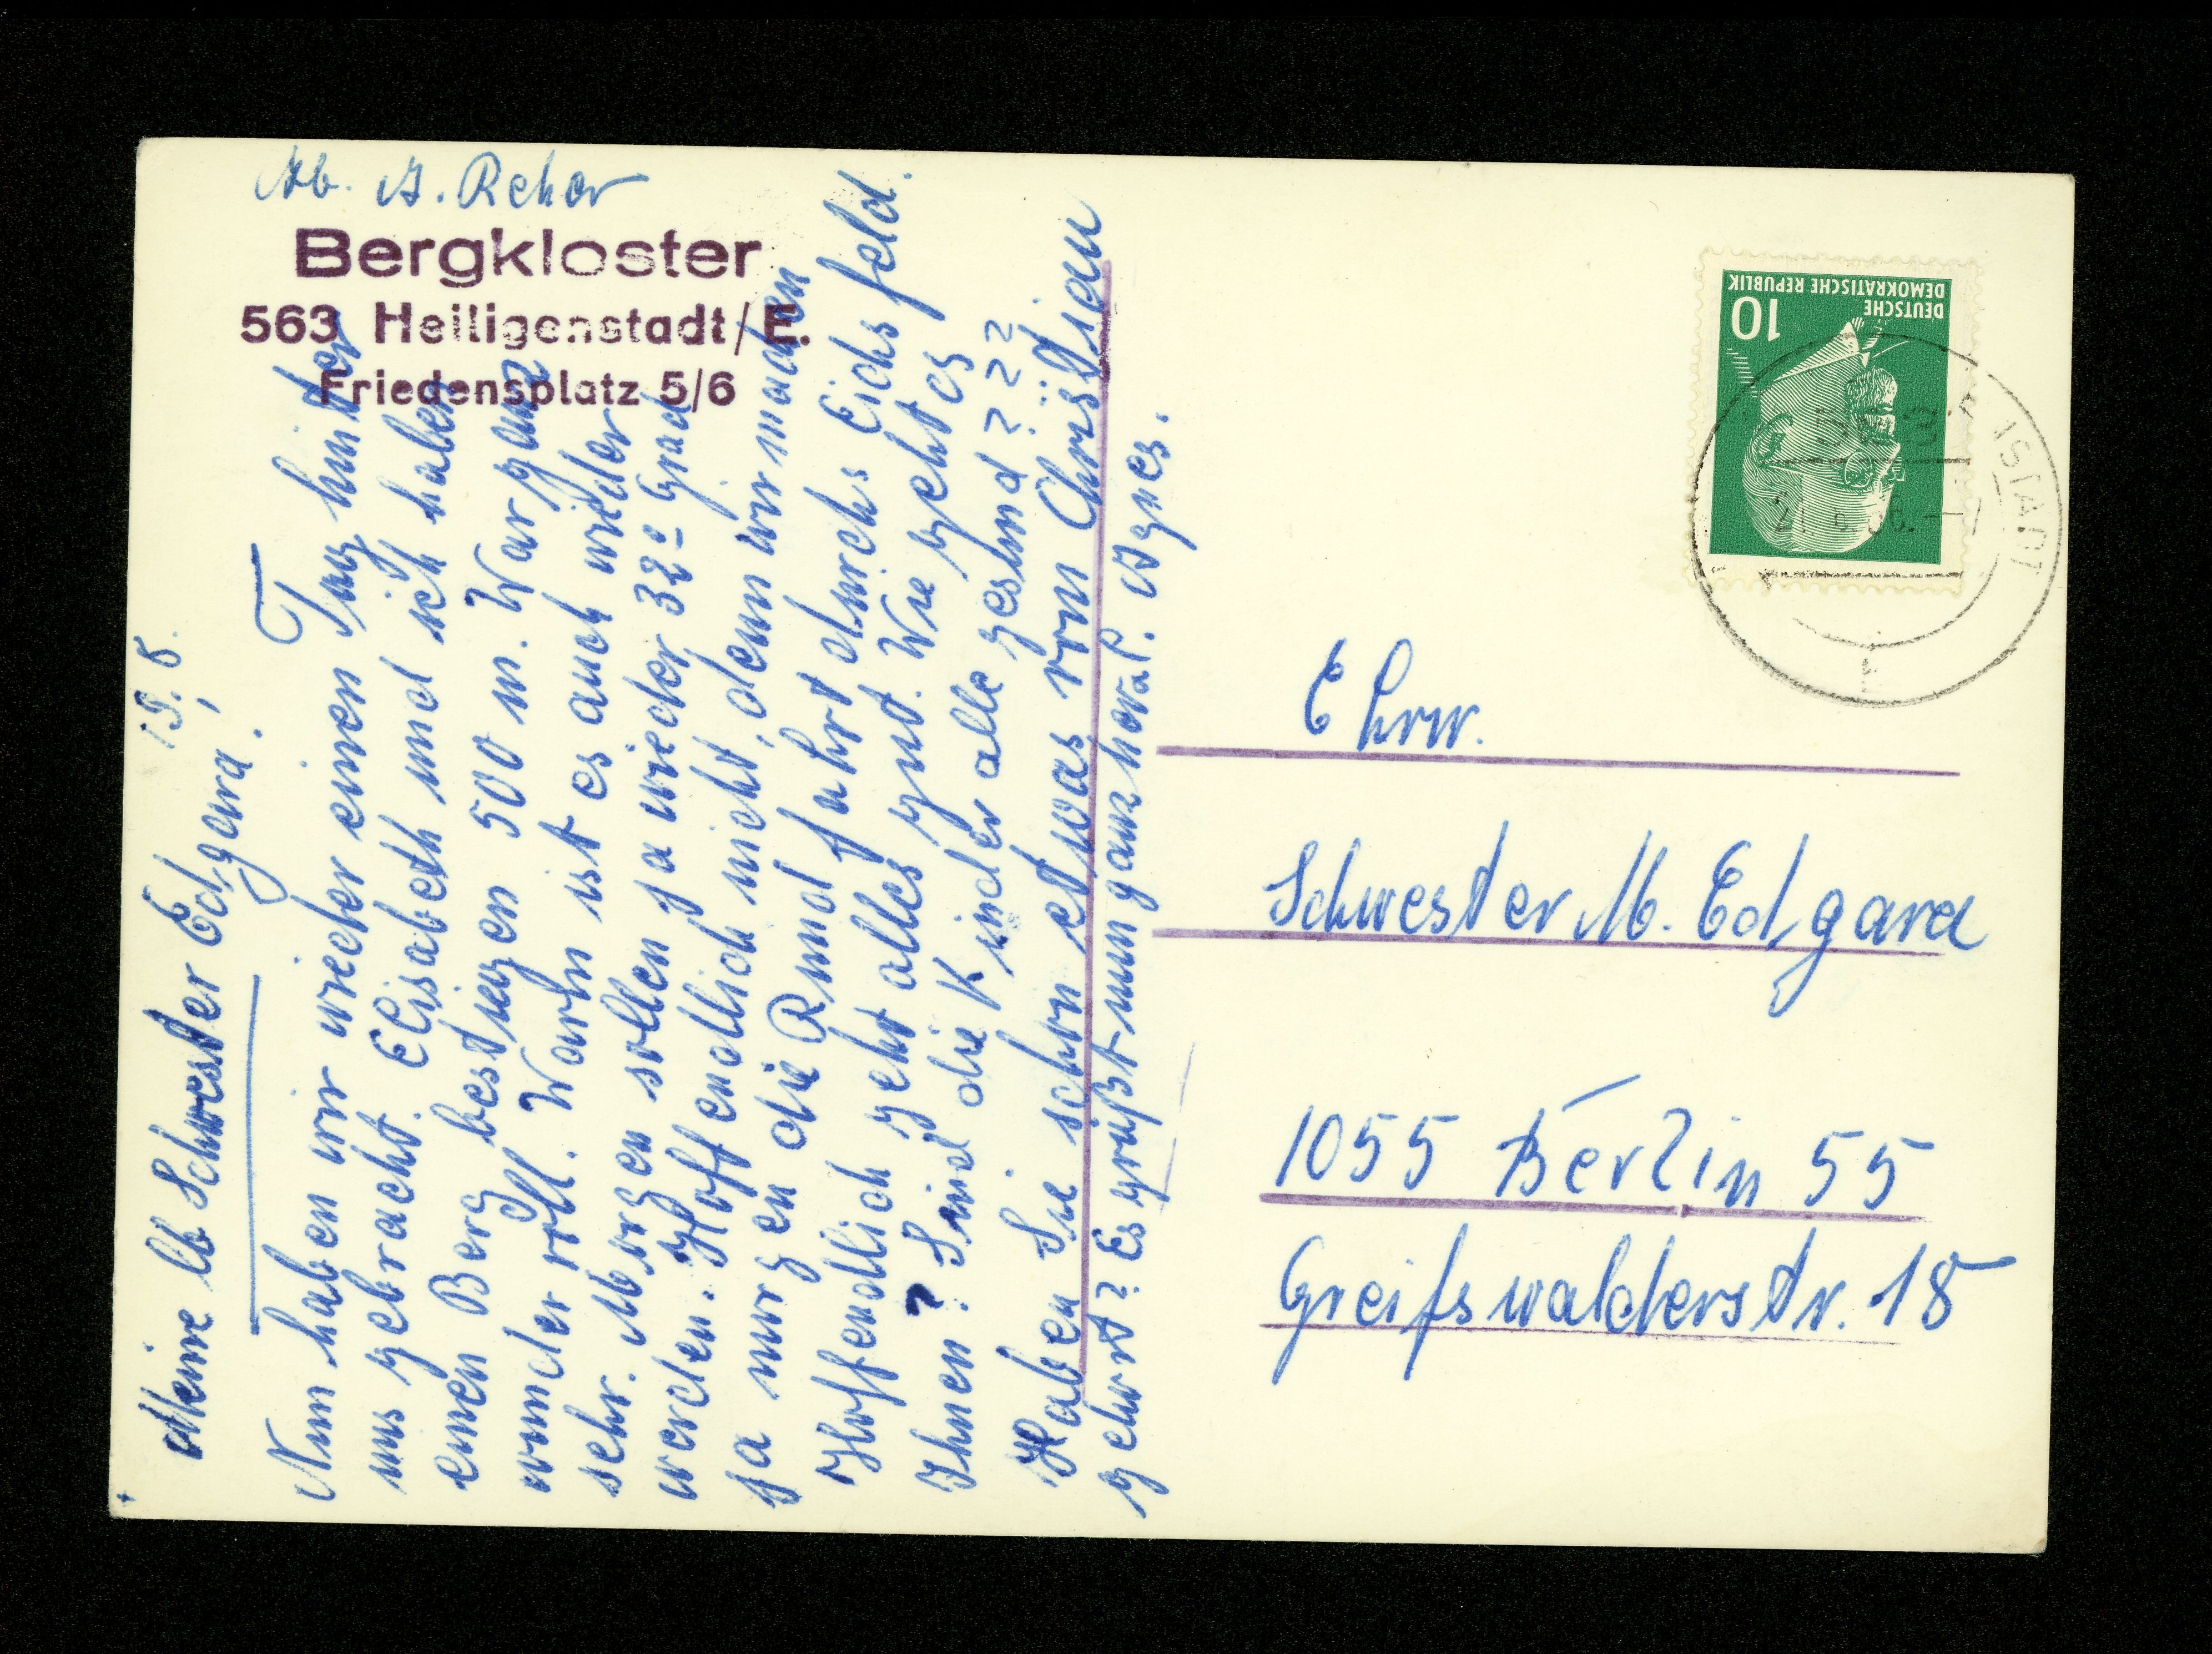 Ab. A. Rehor
Bergkloster
563 Heiligenstadt/E.
Friedensplatz 5/6
19. 8.
Meine lb Schwester Edgara.
Nun haben wir wieder einen Tag hinter
uns gebracht. Elisabeth und ich haben
einen Berg bestiegen 500 m. War ganz
wundervoll. Warm ist es auch wieder
sehr. Morgen sollen ja wieder 32° Grad
werden. Hoffendlich nicht, denn wir machen
ja morgen die Rundfahrt durchs Eichsfeld.
Hoffendlich geht alles gut. Wie geht es
Ihnen? Sind die Kinder alle gesund???
Haben Sie schon etwas von Christian
gehört? Es grüßt nun ganz herzl. Agnes.
DEUTSCHE
DEMOKRATISCHE REPUBLIK
10
Ehrw.
Schwester M. Edgara
1055 Berlin 55
Greifswalderstr. 18